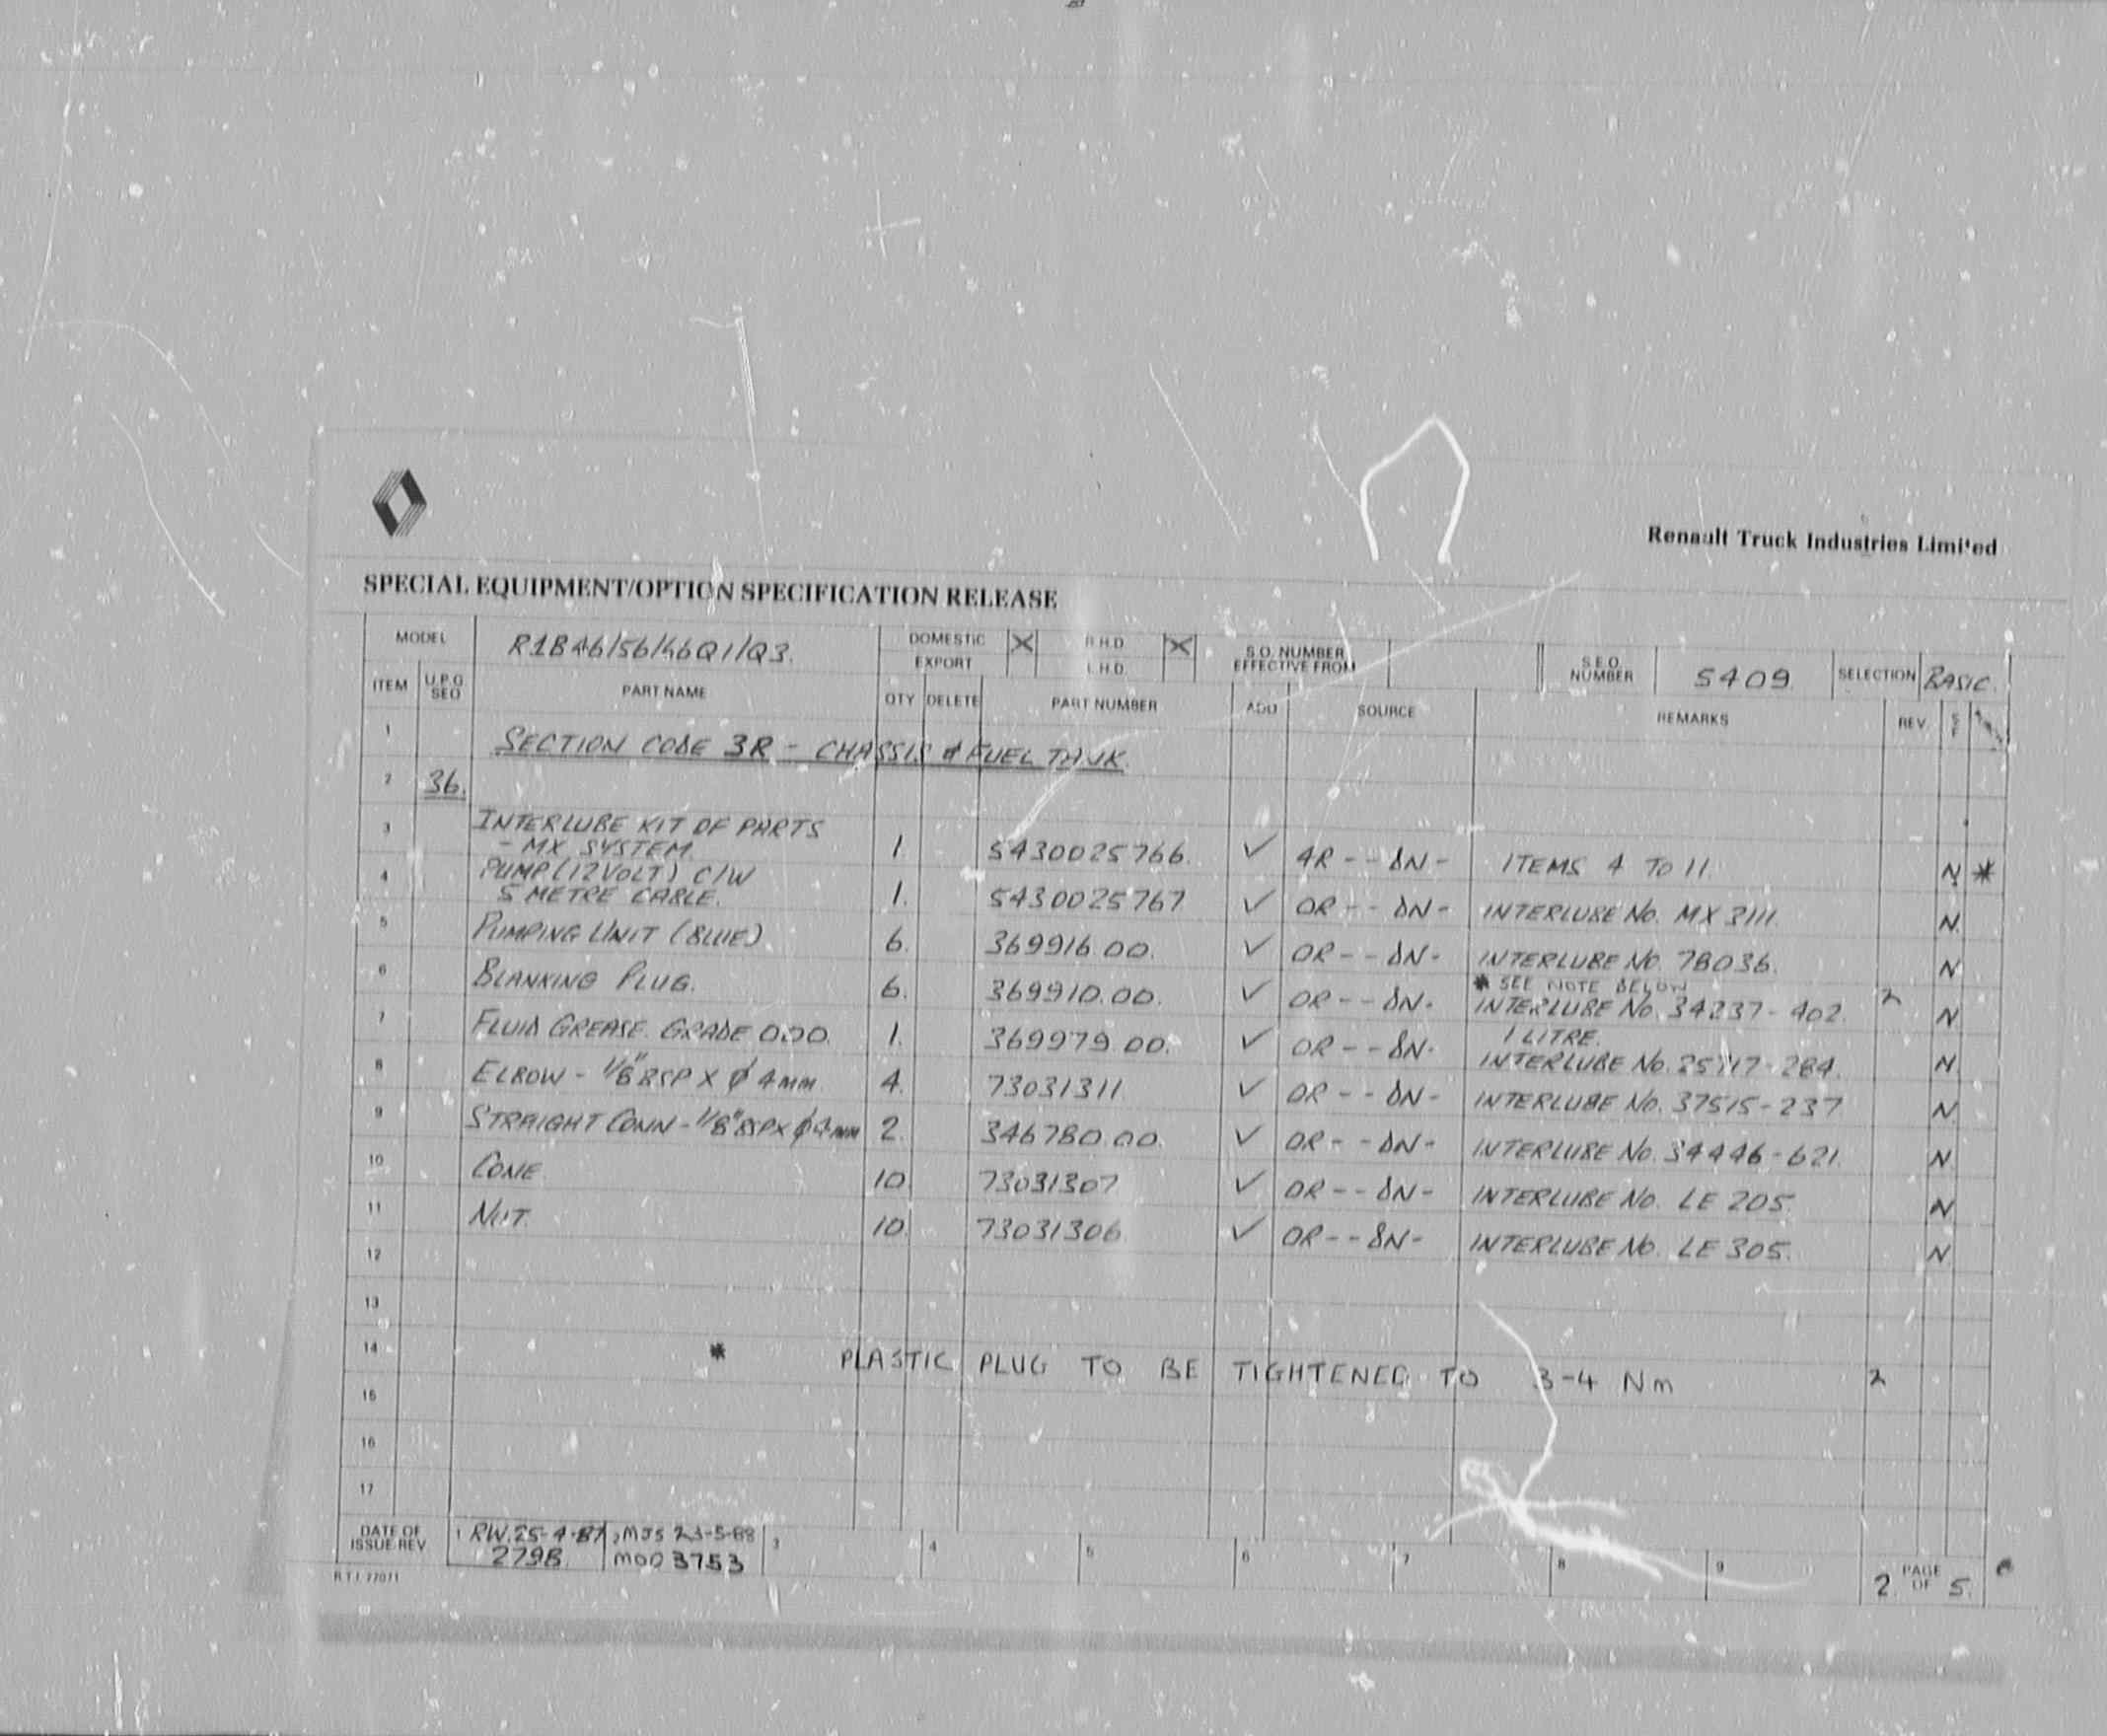 Renault Truck Industries Limited
SPECIAL EQUIPMENT/OPTION SPECIFICATION RELEASE
MODEL R1B46/56/66Q1/Q3. DOMESTIC X R.H.D. X S.O. NUMBER EFFECTIVE FROM S.E.O. NUMBER 5409 SELECTION BASIC.
EXPORT L.H.D.
ITEM U.P.G SEQ PART NAME QTY DELETE PART NUMBER ADD SOURCE REMARKS REV. S F
1 SECTION CODE 3R - CHASSIS & FUEL TANK.
2 36.
3 INTERLUBE KIT OF PARTS
- MX SYSTEM. 1 5430025766. ✓ 4R - - ΔN - ITEMS 4 TO 11. N *
4 PUMP (12 VOLT) C/W
5 METRE CABLE. 1. 5430025767 ✓ OR - - ΔN - INTERLUBE No. MX 3111. N.
5 PUMPING UNIT (BLUE) 6. 369916.00. ✓ OR - - ΔN - INTERLUBE No. 78036. N
* SEE NOTE BELOW
6 BLANKING PLUG. 6. 369910.00. ✓ OR - - ΔN - INTERLUBE No. 34237-402. 2 N
7 FLUID GREASE. GRADE 000. 1. 369979.00. ✓ OR - - ΔN - 1 LITRE.
INTERLUBE No. N
8 ELBOW - 1/8" BSP X ϕ 4mm. 4. 73031311 ✓ OR - - ΔN - INTERLUBE No. 37515-237 N
9 STRAIGHT CONN - 1/8" BSP X ϕ 4mm 2. 346780.00. ✓ OR - - ΔN - INTERLUBE No. 34446-621. N
10 CONE 10. 73031307 ✓ OR - - ΔN - INTERLUBE No. LE 205. N
11 NUT. 10. 73031306 ✓ OR - - ΔN - INTERLUBE No. LE 305. N
12
13
14 * PLASTIC PLUG TO BE TIGHTENED TO 3-4 Nm 2
15
16
17
DATE OF ISSUE/REV 1 RW. 25-4-87 2 MJS 23-5-88 3 4 5 6 7 8 9 2 PAGE OF 5.
2798 MOD 3753
R.T.I. 77071